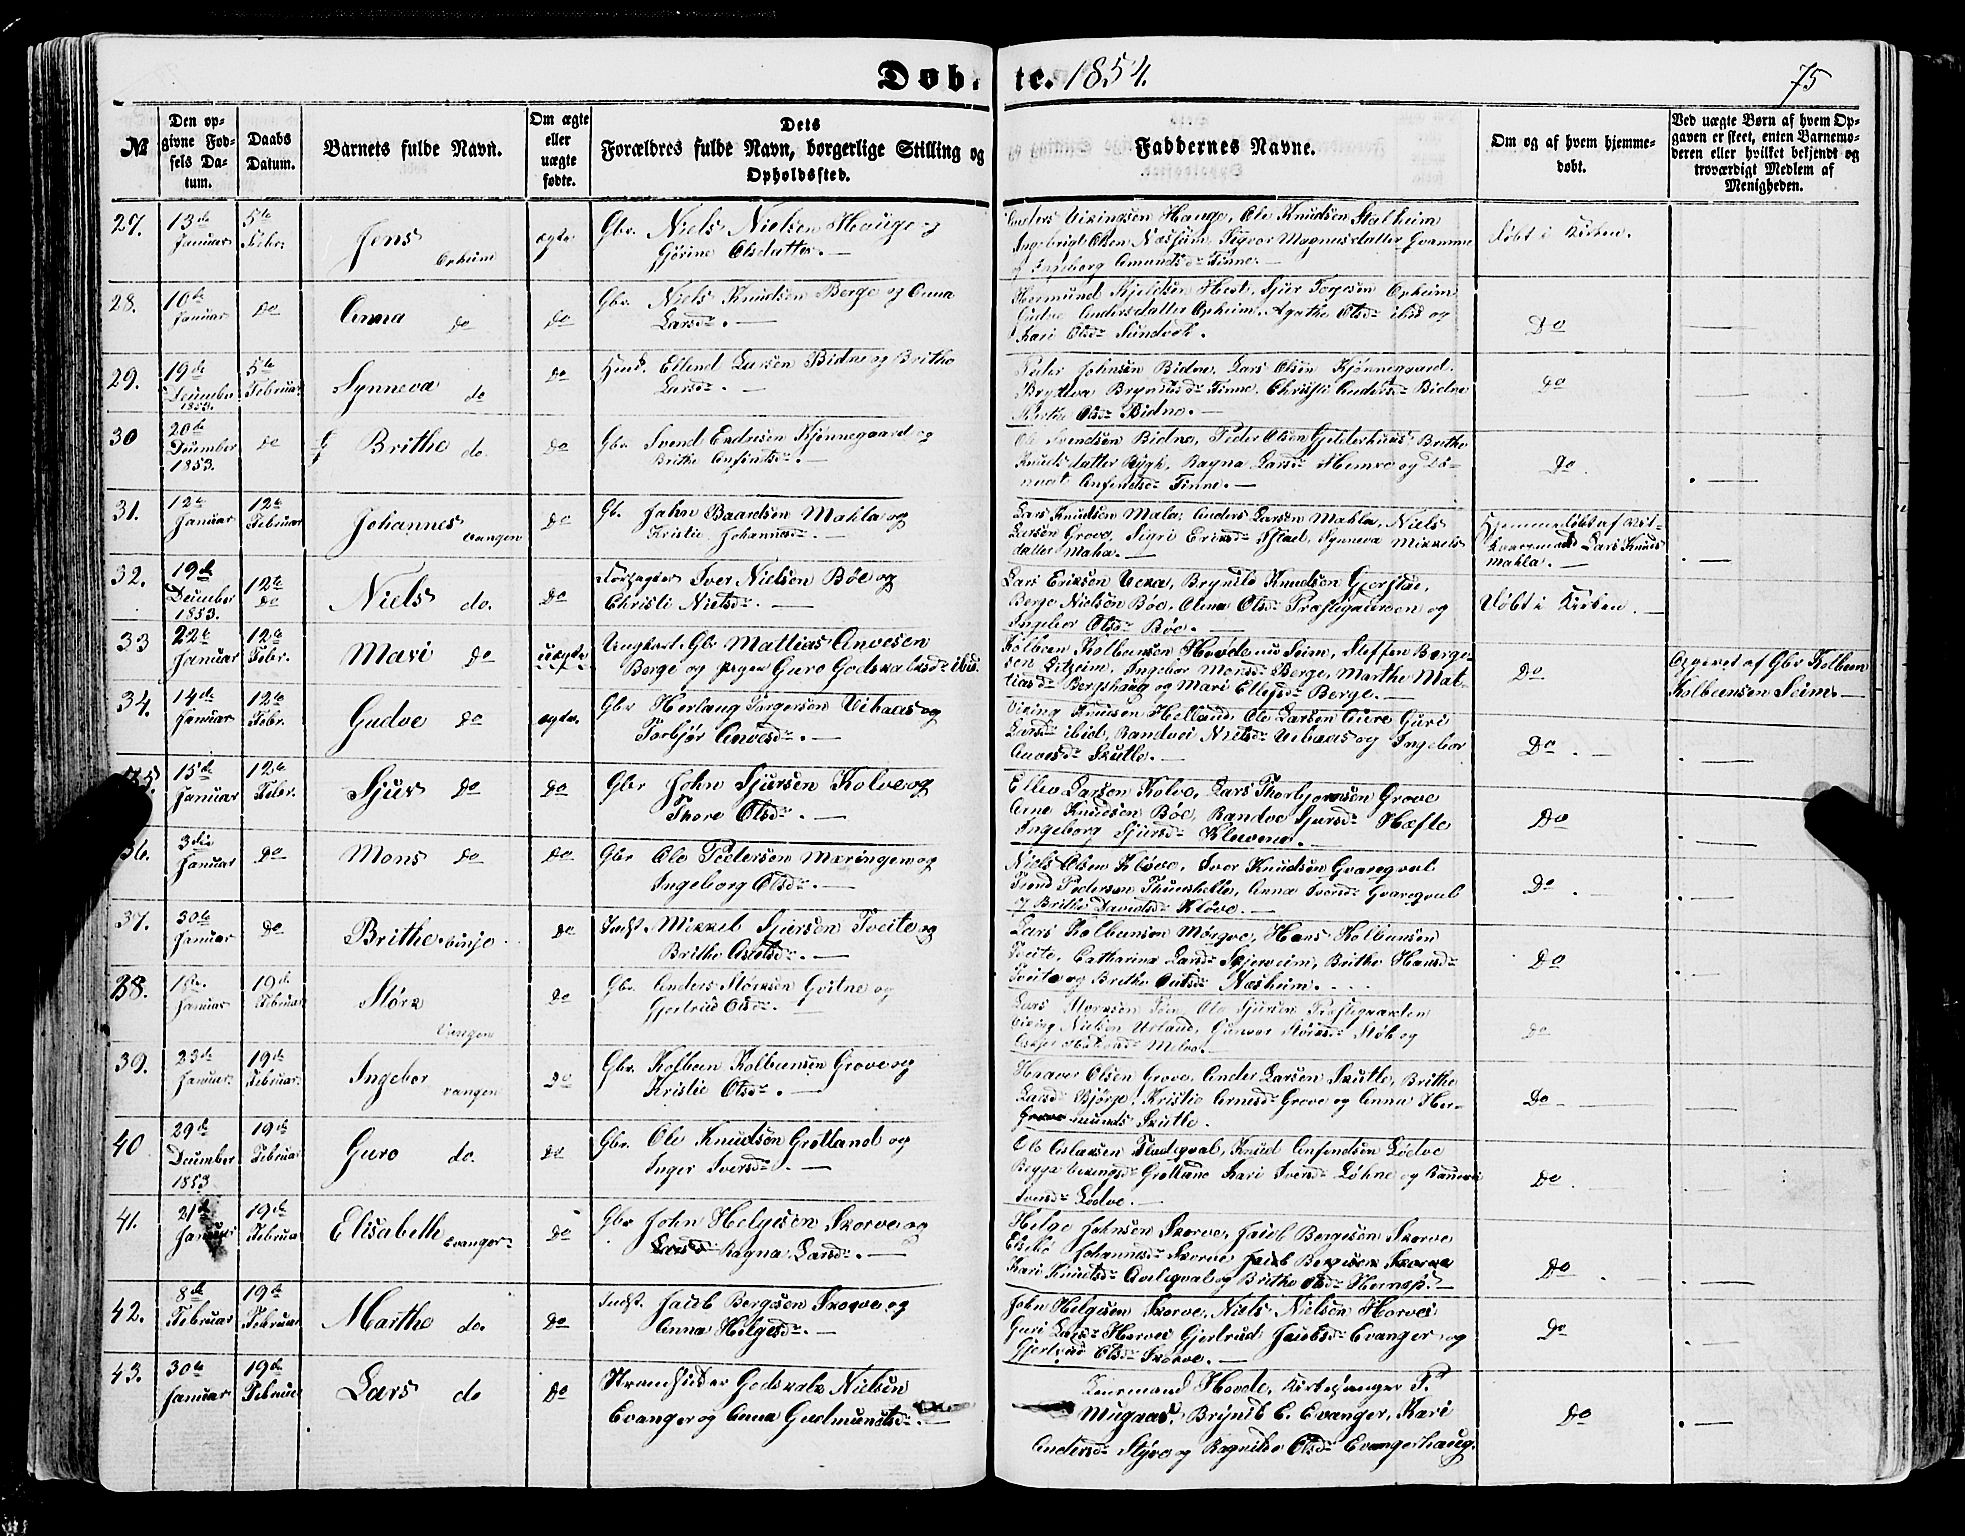 Døbte. 1854.
75
№
Den opgivne Fødsels Datum.
Daabs Datum.
Barnets fulde Navn.
Om ægte eller uægte fødte.
Dets Forældres fulde Navn, borgerlige Stilling og Opholdssted.
Faddernes Navne.
Om og af hvem hjemmedøbt.
Ved uægte Børn af hvem Opgaven er skeet, enten Barnemoderen eller hvilket bekjendt og troværdigt Medlem af Menigheden.
27. 13de Januar 5te Febr. Jens Opheim ægte Gbr. Niels Nielsen Hauge og
Gjørine Olsdatter. —
Anders Vikingsen Hauge, Ole Knudsen Stalheim
Ingebrigt Olsen Næsheim, Sigvor Magnusdatter Gvamme
og Ingeborg Amundsdr Finne. —
Døbt i Kirken.
28. 10de Januar do Anna do do Gbr. Niels Knudsen Berge og Anna
Larsdr. —
Hermund Kjeldsen Hest, Sjur Torgesen Opheim
Gudve Andersdatter Opheim, Agathe Olsdr ibid og
Kari Olsdr Sundvek.
Do
29. 19de December 1853. 5te Februar Synneva do do Huusd. Ellend Larsen Bidne og Britha
Larsdr. —
Peder Johnsen Bidne, Lars Olsen Kjønnegaard
Bryttva Bryniulsdr Finne, Christi Andersdr Bidne
Britha Olsdr Bidne. —
do
30 20de December 1853. do Brithe do. do Gbr. Svend Endresen Kjønnegaard og
Brithe Anfindsdr. —
Ole Svendsen Bidne, Peder Olsen Gjelderhuus Brithe
Knudsdatter Rygh, Ragna Larsdr Hemre og
Anfindsdr Finne. —
do.
31. 12te Januar 12te Februar Johannes Vangen do Gb. John Baardsen Mahla og
Kristie Johannesdr. —
Lars Knudsen Mala, Anders Larsen Mahla, Niels
Larsen Grove, Sigri Eriksdr Istad, Synneva Mikkels
datter Mahla. —
Hjemmedøbt af Lars Knuds
mahla. —
32. 19de December 1853. 12te do Niels do. do Iver Nielsen Bøe og
Christi Nielsdr. —
Lars Eriksen Væka, Brynild Knudsen Gjerstad,
Berge Nielsen Bøe, Anna Olsdr Præstegaarden og
Ingebor Olsdr Bøe. —
Døbt i Kirken. —
33 22de Januar 12te Febr. Mari do uægte Ungkarl Gbr Mattias Anvesen
Berge og pigen Guro Godskalksdr ibid.
Kolbein Kolbeinsen Hovde nu Seim, Steffen Berge
sen Litheim, Ingebor Monsdr Berge, Marthe Mat-
tiasdr Bergshaug og Mari Ellefsdr Berge. —
Do
Opgivet af Gbr Kolbein
Kolbeinsen Seim. —
34. 14de Januar 12te Febr. Gudve do ægte. Gbr Herlaug Torgersen Uthaas og
Torbjør Anvesdr. —
Viking Knudsen Helland, Ole Larsen Giere Guri
Larsdr ibid, Randvei Nielsdr og Ingebor
Skutle. —
Do. —
35. 15de Januar 12te Febr. Sjur do do Gbr John Sjursen Kolve og
Thore Olsdr. —
Ellev Larsen Kolve, Lars Thorbjørnsen Grove
Arne Knudsen Bøe, Randve Sjursdr Hæfte
Ingeborg Sjursdr Klevene. —
Do
36. 3die Januar do Mons do do Gbr Ole Pedersen Mæringen og
Ingeborg Olsdr. —
Niels Olsen Kløve, Iver Knudsen
Trond Pedersen Anna Iversdr
og Brithe Davidsdr Kløve. —
Do.
37. 30te Januar do Brithe Vinje do Indst. Mikkel Sjursen Tveite og
Brithe —
Lars Kolbeinsen Mørqve, Hans Kolbeinsen
Tveite, Catharina Larsdr Skjerveim, Brithe Hansdr
Tveite og Brithe Næsheim. —
Do
38. Januar 19de Februar Størk Vangen do Gbr. Anders Størksen Gvitne og
Gjertrud Olsdr. —
Lars Størksen Ole Sjursen Præstegaarden
Viking Nielsen Urland, Gunvor Størksdr og
do
39. 23de Januar. 19de Februar. Ingebor Vangen do Gbr. Kolbein Kolbeinsen Grove og
Kristie Olsdr. —
Haaver Olsen Grove, Ander Larsen Skutle, Brithe
Larsdr Bjørge, Kristie Arnesdr Grove og Anna Her-
munds Skutle.
Do. —
40 29de December 1853 19de Februar Guro do. do Gbr. Ole Knudsen Grøtland og
Inger Iversdr. —
Ole Knud Anfindsen Lødve
Vikingsdr Grøtland Kari Løhne og
Iversdr Lødve. —
Do.
41. 21de Januar 19de Februar Elisabeth Evanger do Gbr John Helgesen Skorve og
Ragna Larsdr. —
Helge Johnsen Skorve, Jacob Bergesen Skorve
Johannesdr Skorve
Kari Knudsdr og Brithe Olsdr Hernæs. —
Do
42. 8de Februar 19de Februar Marthe do. do Indst. Jacob Bergesen Skorve og
Anna Helgesdr. —
John Helgesen Skorve, Niels Nielsen Horvei
Guri Larsdr Horvei Gjertrud Jacobsdr Evanger og
Gjertrud Olsdr Skorve. —
Do
43. 30te Januar 19de Februar Lars do do Strandsidder Godskalk Nielsen
Evanger og Anna Gudmundsdr. —
Leirmand Hovde, Kirkesanger P.
Mugaas, Brynild E. Evanger, Kari
Andersdr Styve og Ragnilde Olsdr Evangerhaug.
Do